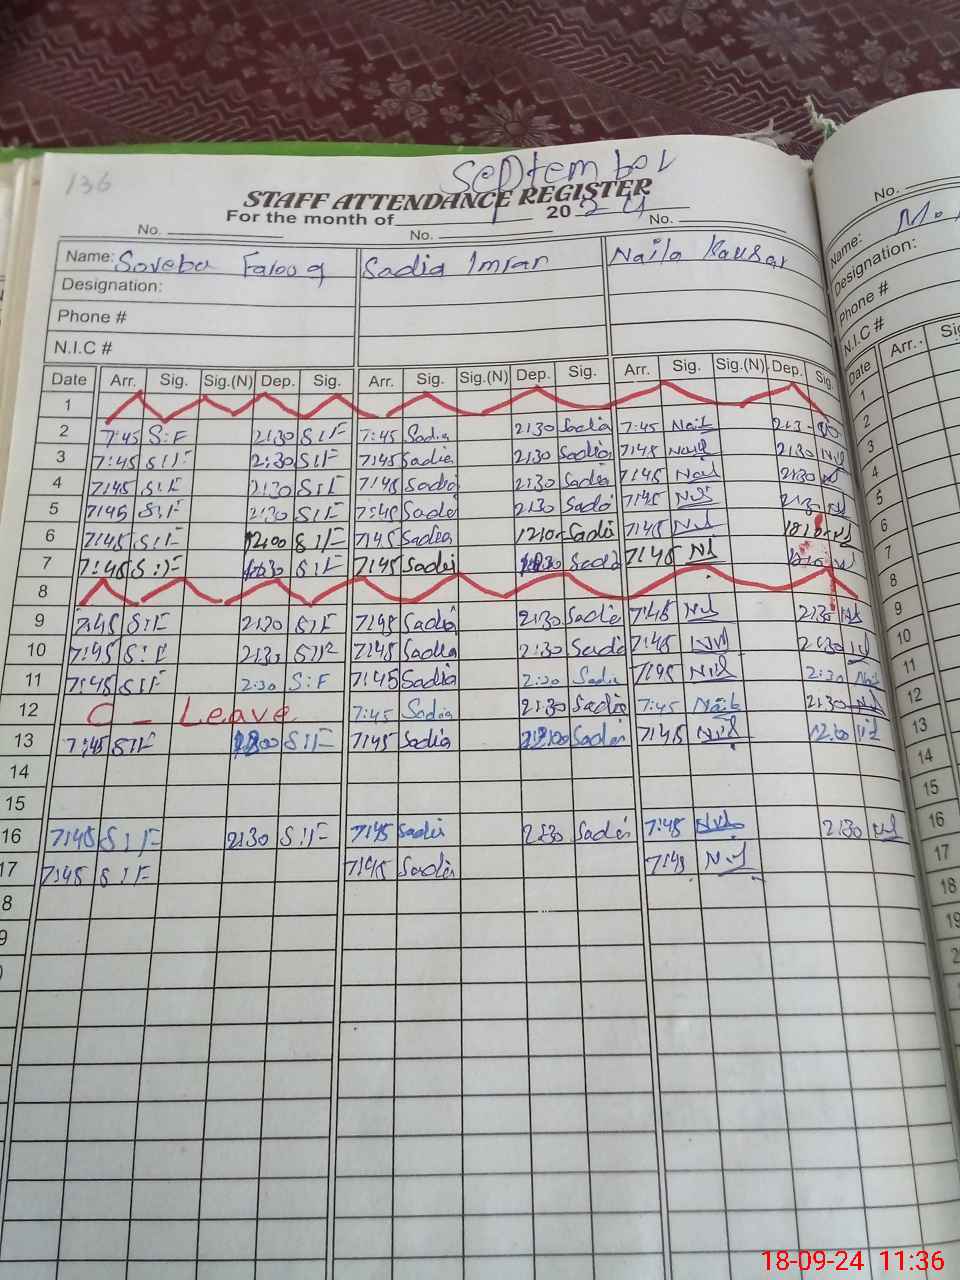 136
September
STAFF ATTENDANCE REGISTER
For the month of 2024
No. No. No.
Name: Soveba Farooq Sadia Imran Naila Kausar
Designation:
Phone #
N.I.C #
Date Arr. Sig. Sig.(N) Dep. Sig. Arr. Sig. Sig.(N) Dep. Sig. Arr. Sig. Sig.(N) Dep. Sig.
1
2 7:45 S:F 2:30 S:F 7:45 Sadia 2:30 Sadia 7:45
3 7:45 S:F 2:30 S:F 7:45 Sadia 2:30 Sadia 7:45 2:30
4 7:45 S:F 2:30 S:F 7:45 Sadia 2:30 Sadia 7:45 2:30
5 7:45 S:F 2:30 S:F 7:45 Sadia 2:30 Sadia 7:45 2:30
6 7:45 S:F 12:00 S:F 7:45 Sadia Sadia 7:45
7 7:45 S:F S:F 7:45 Sadia Sadia 7:45
8
9 7:45 S:F 2:30 S:F 7:45 Sadia 2:30 Sadia 7:45 2:30
10 7:45 S:F 2:30 S:F 7:45 Sadia 2:30 Sadia 7:45 2:30
11 7:45 S:F 2:30 S:F 7:45 Sadia 2:30 Sadia 7:45 2:30
12 C - Leave 7:45 Sadia 2:30 Sadia 7:45 2:30
13 7:45 S:F S:F 7:45 Sadia Sadia 7:45
14
15
16 7:45 S:F 2:30 S:F 7:45 Sadia 2:30 Sadia 7:45 2:30
17 7:45 S:F 7:45 Sadia 7:45
8
9
No.
Name: M.
Designation:
Phone #
N.I.C #
Date Arr.
1
2
3
4
5
6
7
8
9
10
11
12
13
14
15
16
17
18
19
18-09-24 11:36